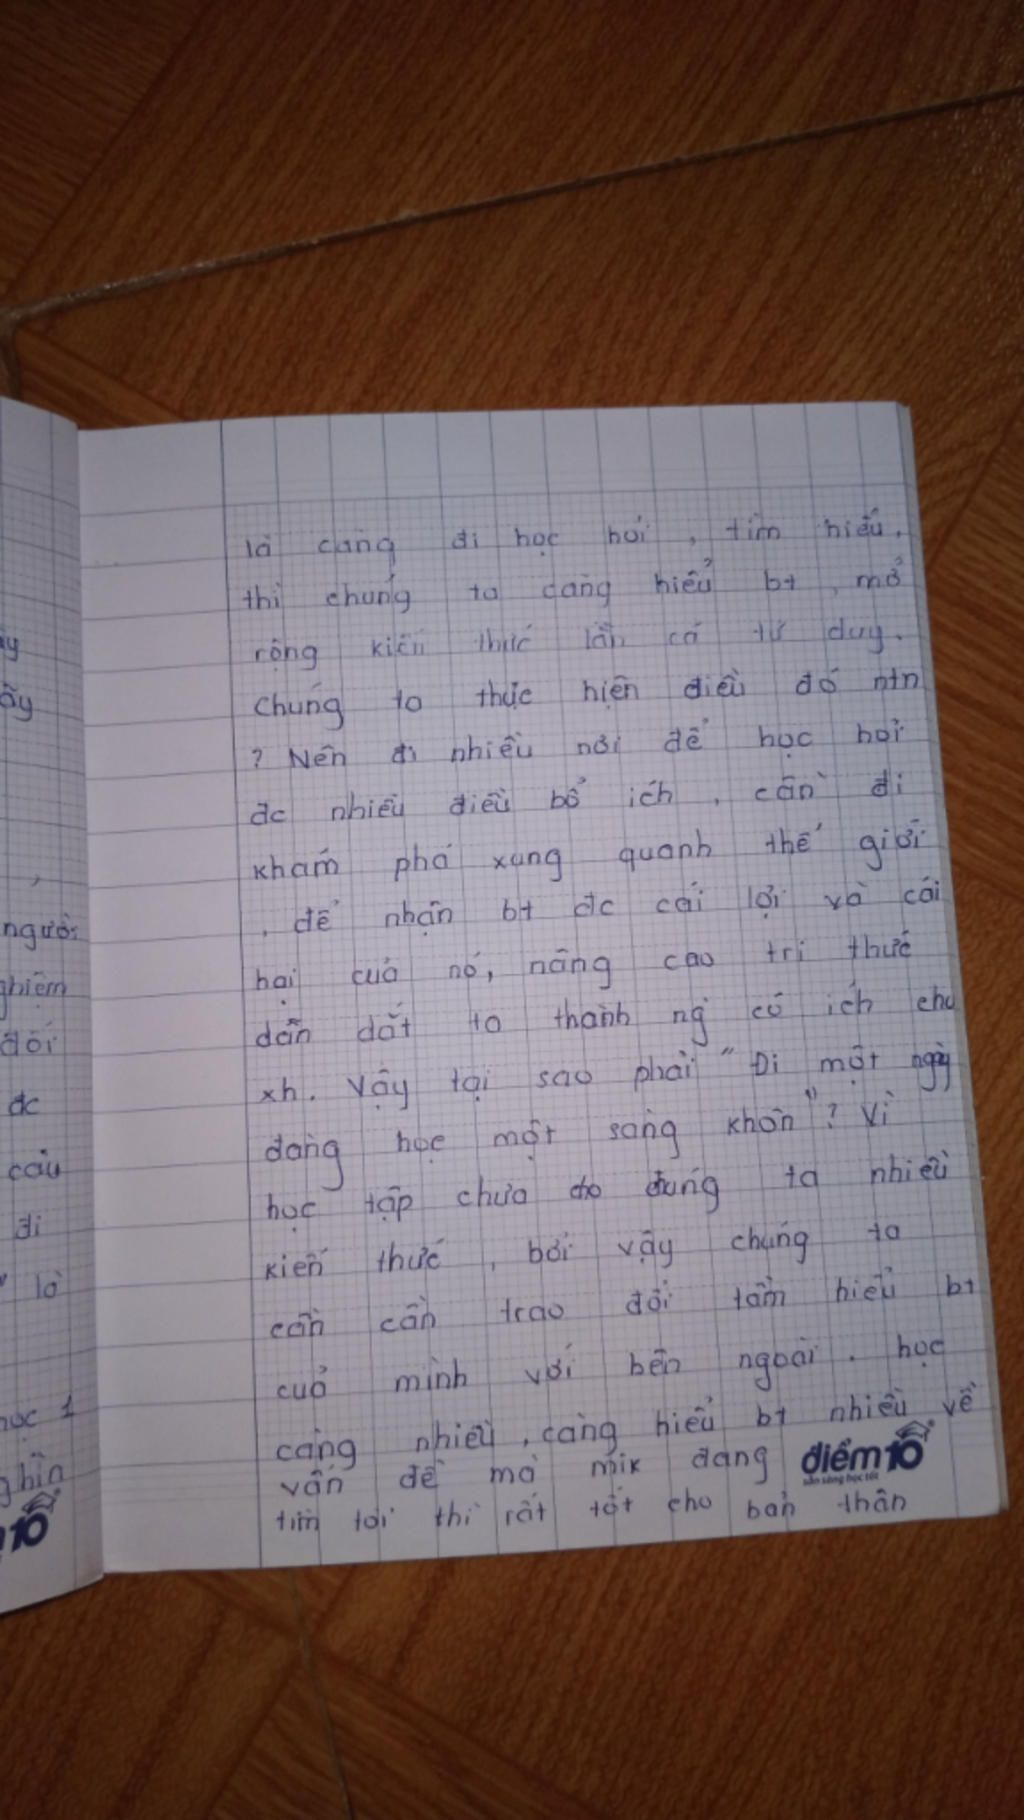 là càng đi học hỏi, tìm hiểu,
thì chúng ta càng hiểu bt, mở
rộng kiến thức lẫn cả tư duy.
Chúng ta thực hiện điều đó ntn
? Nên đi nhiều nơi để học hỏi
đc nhiều điều bổ ích, cần đi
khám phá xung quanh thế giới
, để nhận bt đc cái lợi và cái
hại của nó, nâng cao tri thức
dẫn dắt ta thành ng có ích cho
xh. Vậy tại sao phải "Đi một ngày
đàng học một sàng khôn"? Vì
học tập chưa cho chúng ta nhiều
kiến thức, bởi vậy chúng ta
cần cần trao đổi tầm hiểu bt
của mình với bên ngoài. học
càng nhiều, càng hiểu bt nhiều về
vấn đề mà mik đang
tìm tòi thì rất tốt cho bản thân
điểm10
sẵn sàng học tốt
ãy
người
nghiệm
đối
đc
câu
đi
là
học 1
10